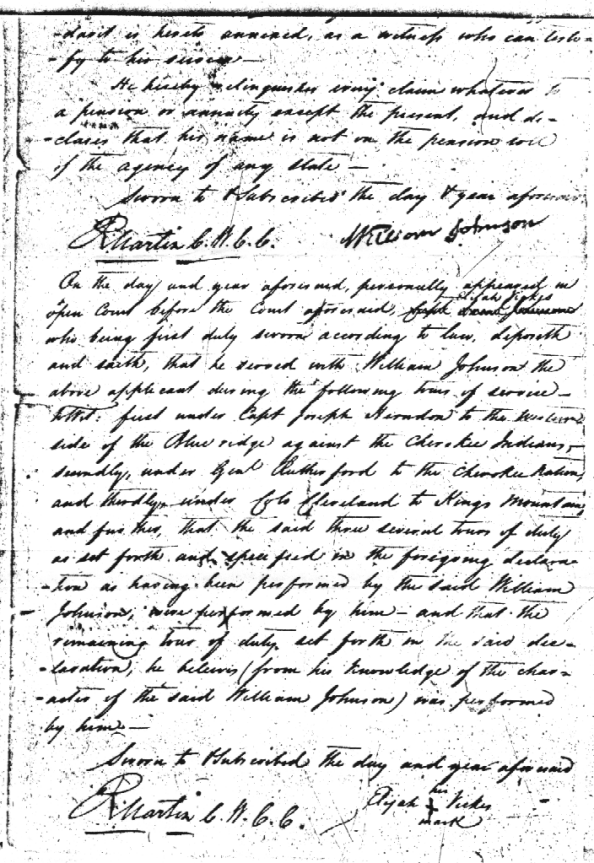 -davit is hereto annexed, as a witness who can testi-
-fy to his service —
He hereby relinquishes every claim whatever to
a pension or annuity except the present, and de-
-clares that his name is not on the pension roll
of the agency of any state —
Sworn to & Subscribed the day & year aforesaid
R Martin C. W. C. C. William Johnson
On the day and year aforesaid, personally appeared in
open Court before the Court aforesaid, Elijah Vickes
who being first duly sworn according to law, deposeth
and saith, that he served with William Johnson the
above applicant during the following tours of service —
towit: first under Capt Joseph Herndon to the western
side of the Blue ridge against the Cherokee Indians,—
secondly, under Genl Rutherford to the Cherokee Nation,
and thirdly, under Colo Cleveland to Kings Mountain,
and further, that the said three several tours of duty
as set forth and specified in the foregoing declara-
-tion as having been performed by the said William
Johnson, were performed by him — and that the
remaining tour of duty set forth in the said dec-
-laration, he believes (from his knowledge of the char-
-acter of the said William Johnson) was performed
by him —
Sworn to & Subscribed the day and year aforesaid
R Martin C. W. C. C. Elijah his Vickes
mark